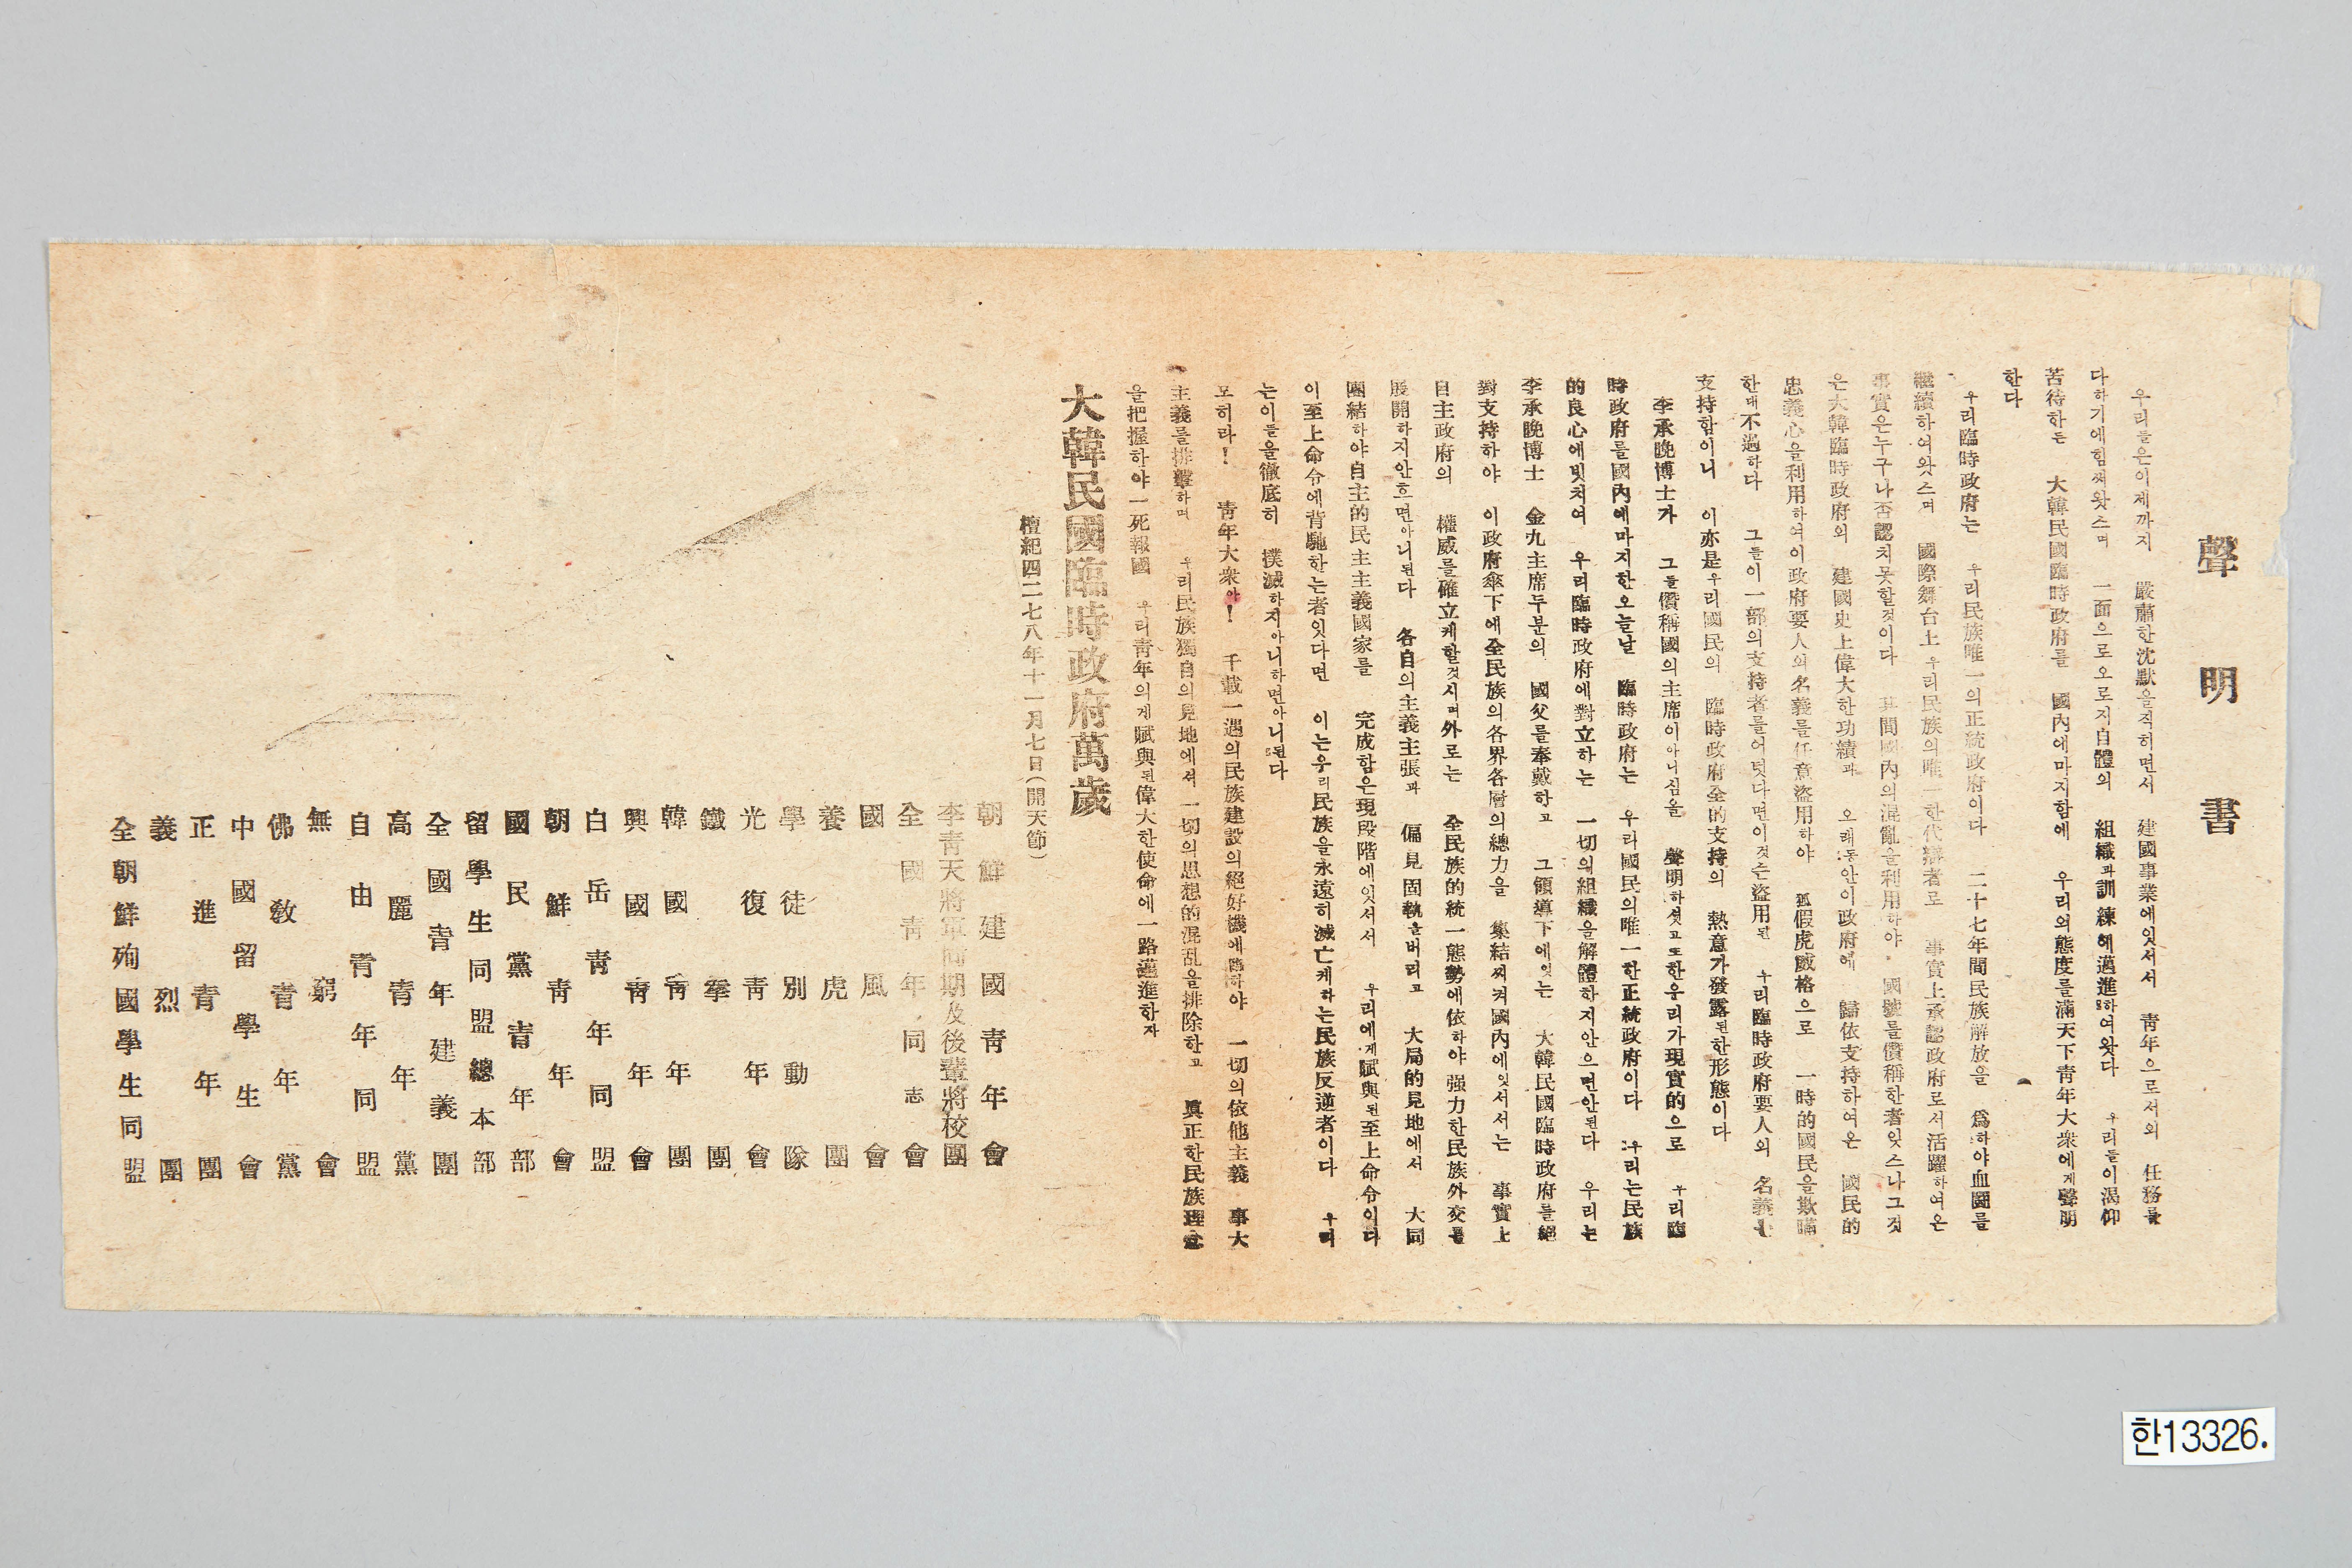 聲明書
우리들은이제까지 嚴肅한沈默을직히면서 建國事業에잇서서 靑年으로서의 任務를
다하기에힘써왓스며 一面으로오로지自體의 組織과訓練에邁進하여왓다 우리들이渴仰
苦待하든 大韓民國臨時政府를 國內에마지함에 우리의態度를滿天下靑年大衆에게聲明
한다
우리臨時政府는 우리民族唯一의正統政府이다 二十七年間民族解放을 爲하야血鬪를
繼續하여왓스며 國際舞台上 우리民族의唯一한代辯者로 事實上承認政府로서活躍하여온
事實은누구나否認치못할것이다 其間國內의混亂을利用하야 國號를僭稱한者잇스나그것
은大韓臨時政府의 建國史上偉大한功績과 오래동안이政府에 歸依支持하여온 國民的
忠義心을利用하여이政府要人의名義를任意盜用하야 狐假虎威格으로 一時的國民을欺瞞
한대不過하다 그들이一部의支持者를어덧다면이것은盜用된 우리臨時政府要人의 名義를
支持함이니 이亦是우리國民의 臨時政府全的支持의 熱意가發露된한形態이다
李承晩博士가 그들僭稱國의主席이아니심을 聲明하셧고또한우리가現實的으로 우리臨
時政府를國內에마지한오늘날 臨時政府는 우리國民의唯一한正統政府이다 우리는民族
的良心에빗처여 우리臨時政府에對立하는 一切의組織을解體하지안으면안된다 우리는
李承晩博士 金九主席두분의 國父를奉戴하고 그領導下에잇는 大韓民國臨時政府를絕
對支持하야 이政府傘下에全民族의各界各層의總力을 集結식켜國內에잇서서는 事實上
自主政府의 權威를確立케할것시며外로는 全民族的統一態勢에依하야强力한民族外交를
展開하지안흐면아니된다 各自의主義主張과 偏見固執을버리고 大局的見地에서 大同
團結하야自主的民主主義國家를 完成함은現段階에잇서서 우리에게賦與된至上命令이다
이至上命令에背馳한는者잇다면 이는우리民族을永遠히滅亡케하는民族反逆者이다 우리
는이들을徹底히 撲滅하지아니하면아니된다
모히라! 靑年大衆아! 千載一遇의民族建設의絕好機에臨하야 一切의依他主義 事大
主義를排擊하며 우리民族獨自의見地에서 一切의思想的混乱을排除하고 眞正한民族理念
을把握하야一死報國 우리靑年의게賦與된偉大한使命에一路邁進한자
大韓民國臨時政府萬歲
檀紀四二七八年十一月七日(開天節)
朝鮮建國靑年會
李靑天將軍同期及後輩將校團
全國靑年同志會
國風會
養虎團
學徒別動隊
光復靑年會
鐵拳團
韓國靑年團
興國靑年會
白岳靑年同盟
朝鮮靑年會
國民黨靑年部
留學生同盟總本部
全國靑年建義團
高麗靑年黨
自由靑年同盟
無窮會
佛敎靑年黨
中國留學生會
正進靑年團
義烈團
全朝鮮殉國學生同盟
한13326.